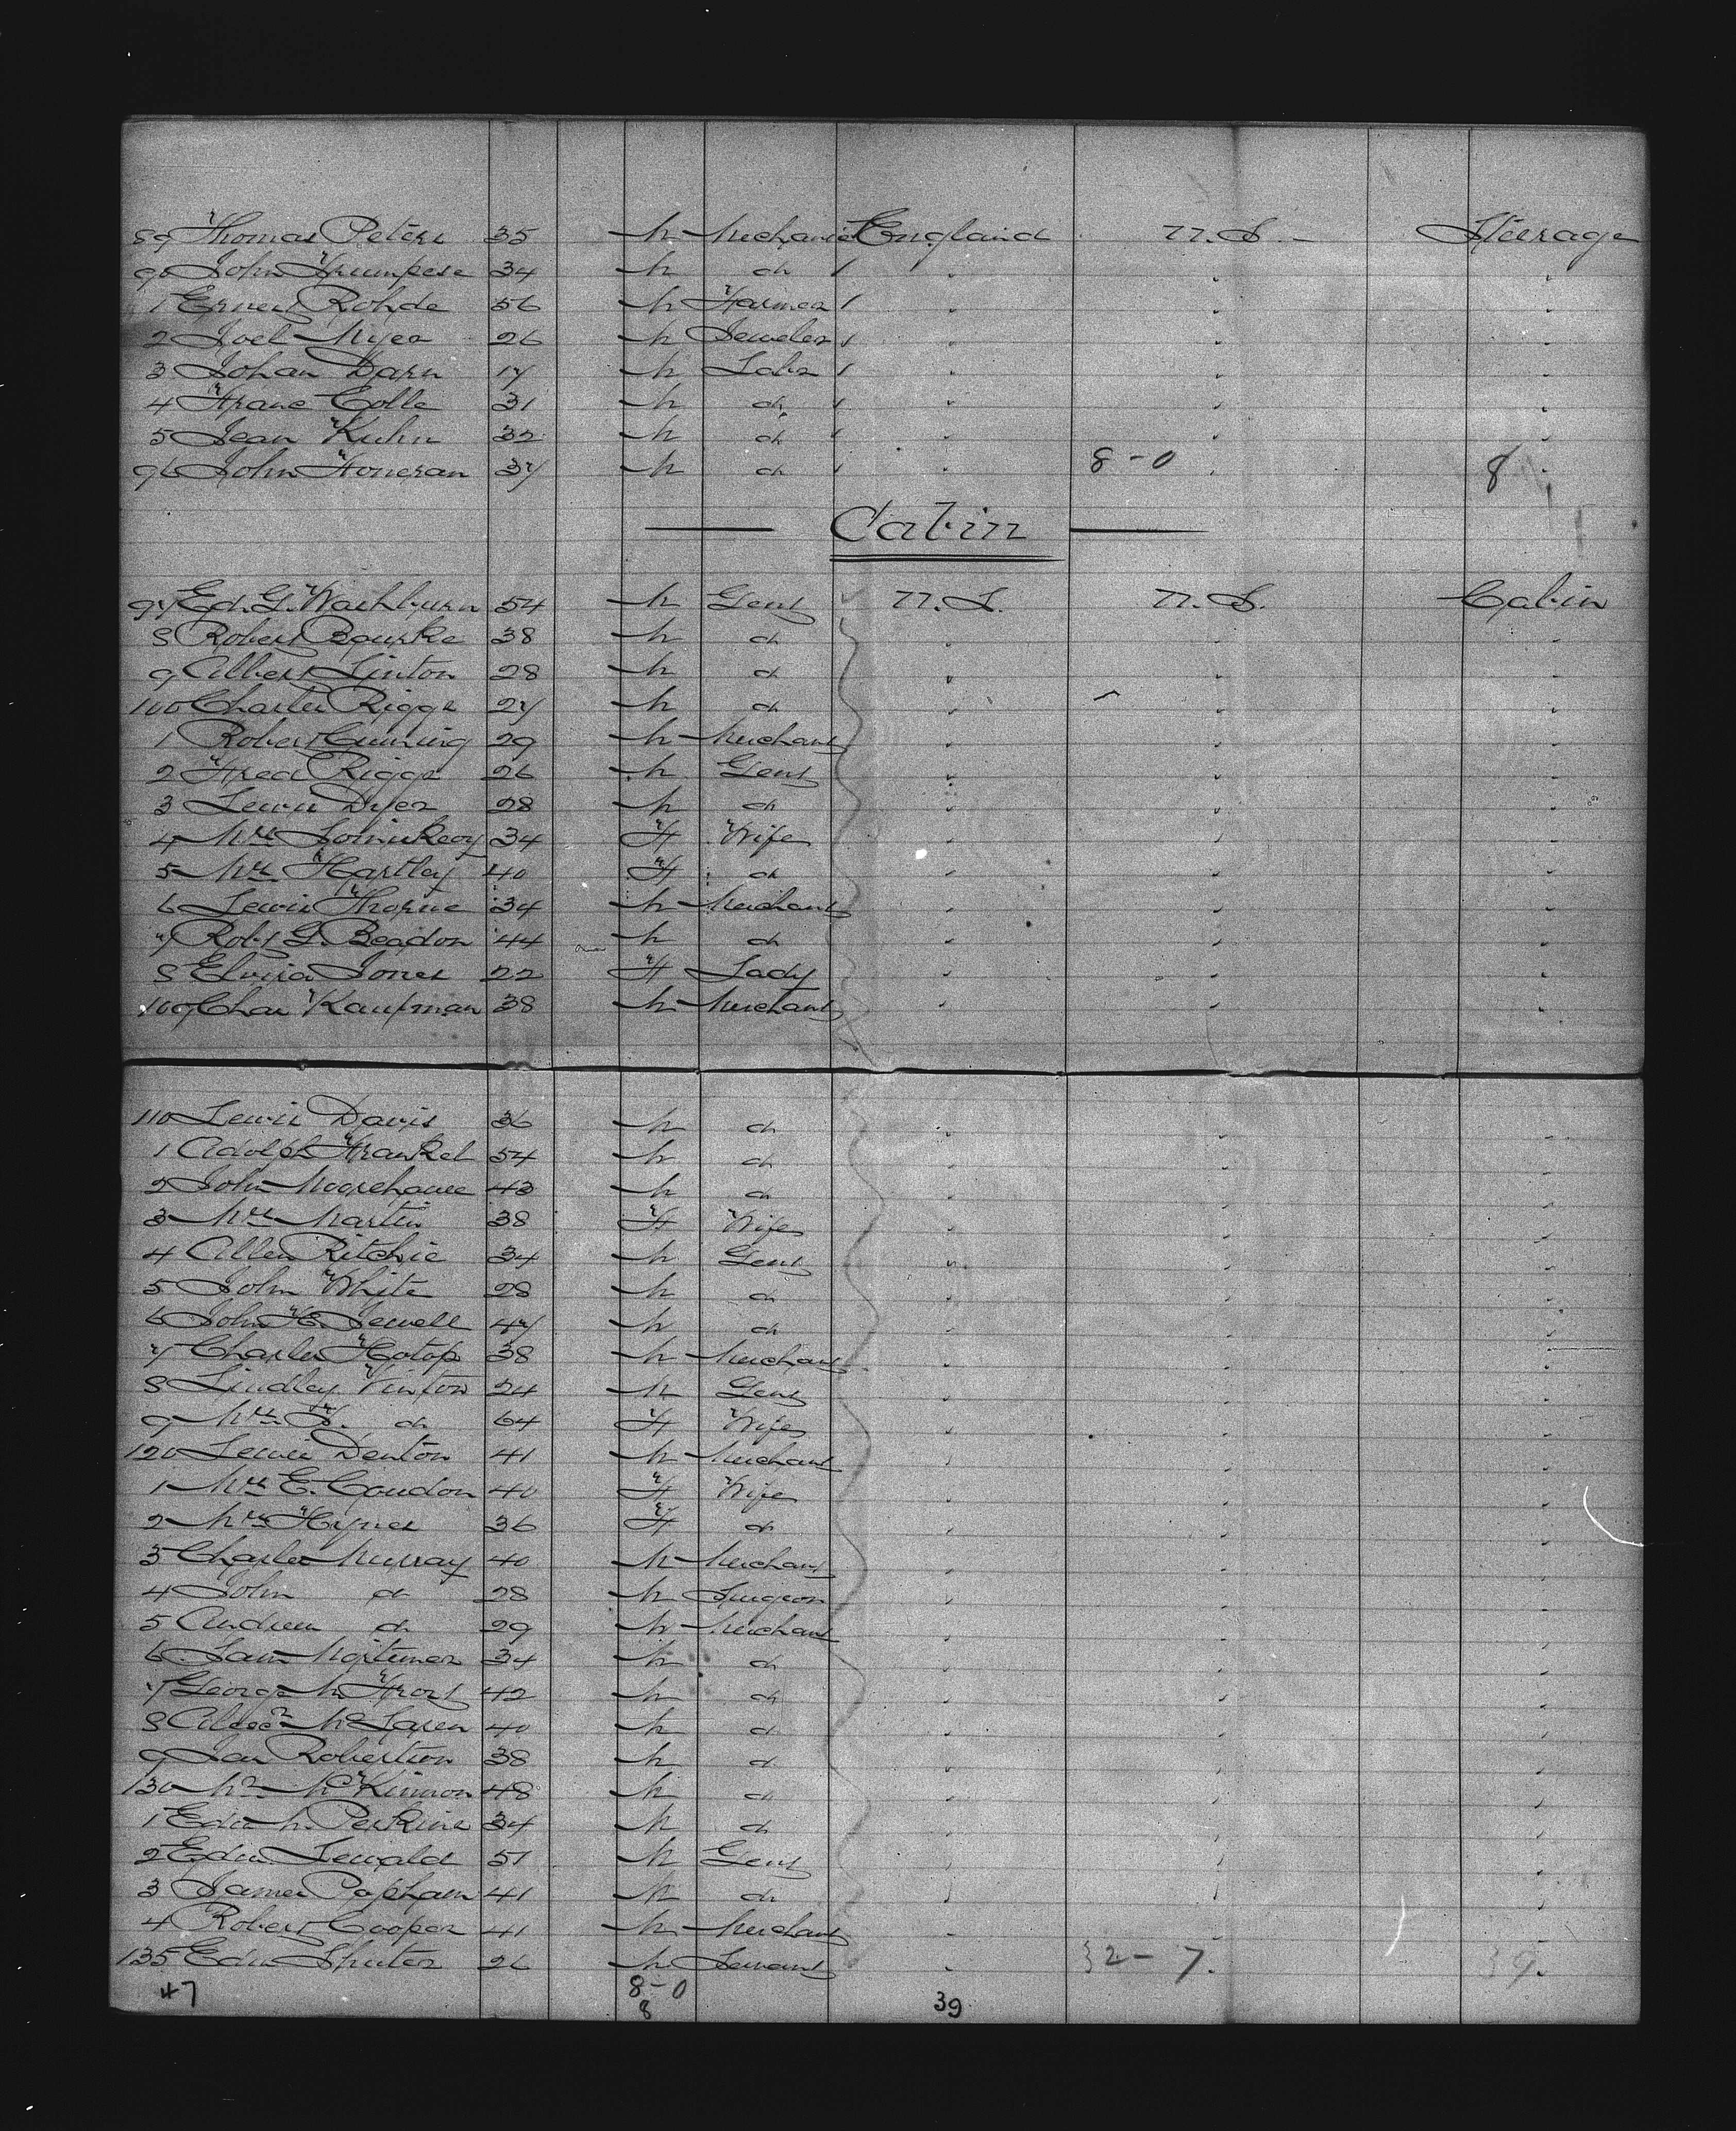 89 Thomas Peters 35 M Mechanic England U.S. - Steerage
90 John 34 M do / " " "
1 Ernest Rohde 56 M Farmer / " " "
2 Joel Myer 26 M Jeweler / " " "
3 Johan Darn 17 M Labr / " " "
4 Franc Colle 31 M do / " " "
5 Jean Kuhn 32 M do / " " "
96 John Honeran 37 M do / " 8-0 " 8 "
Cabin
97 Ed. G. Washburn 54 M Gent U.S. U.S. Cabin
8 Robert Bourke 38 M do " " "
9 Albert Linton 28 M do " " "
100 Charles Riggs 27 M do " " "
1 Robert Cuming 29 M Merchant " " "
2 Fred Riggs 26 M Gent " " "
3 Lewis Dyer 28 M do " " "
4 Mrs 34 F Wife " " "
5 Mrs Hartley 40 F do " " "
6 Lewis Thorne 34 M Merchant " " "
7 Robt G. Beadon 44 M do " " "
8 Elvira Jones 22 F Lady " " "
109 Chas Kaufman 38 M Merchant " " "
110 Lewis Davis 36 M do " " "
1 Adolph Frankel 54 M do " " "
2 John Moorehouse 43 M do " " "
3 Mrs Martin 38 F Wife " " "
4 Allen Ritchie 34 M Gent " " "
5 John White 28 M do " " "
6 John H.E. Sewell 47 M do " " "
7 Charles Hotop 38 M Merchant " " "
8 Lindley Vinton 24 M Gent " " "
9 Mrs do 64 F Wife " " "
120 Lewis Denton 41 M Merchant " " "
1 Mrs E. Coudon 40 F Wife " " "
2 Mrs Hynes 36 F do " " "
3 Charles Murray 40 M Merchant " " "
4 John do 28 M Surgeon " " "
5 Andrew do 29 M Merchant " " "
6 Sam Mortimer 34 M do " " "
7 George M. Frost 42 M do " " "
8 McLaren 40 M do " " "
9 Jas Robertson 38 M do " " "
130 Mr McKinnon 48 M do " " "
1 Edw M. Perkins 34 M do " " "
2 Edw Sewald 51 M Gent " " "
3 James Popham 41 M do " " "
4 Robert Cooper 41 M Merchant " " "
135 Edw Shuter 26 M Servant " 32-7 " 39 "
47 8-0 39
8